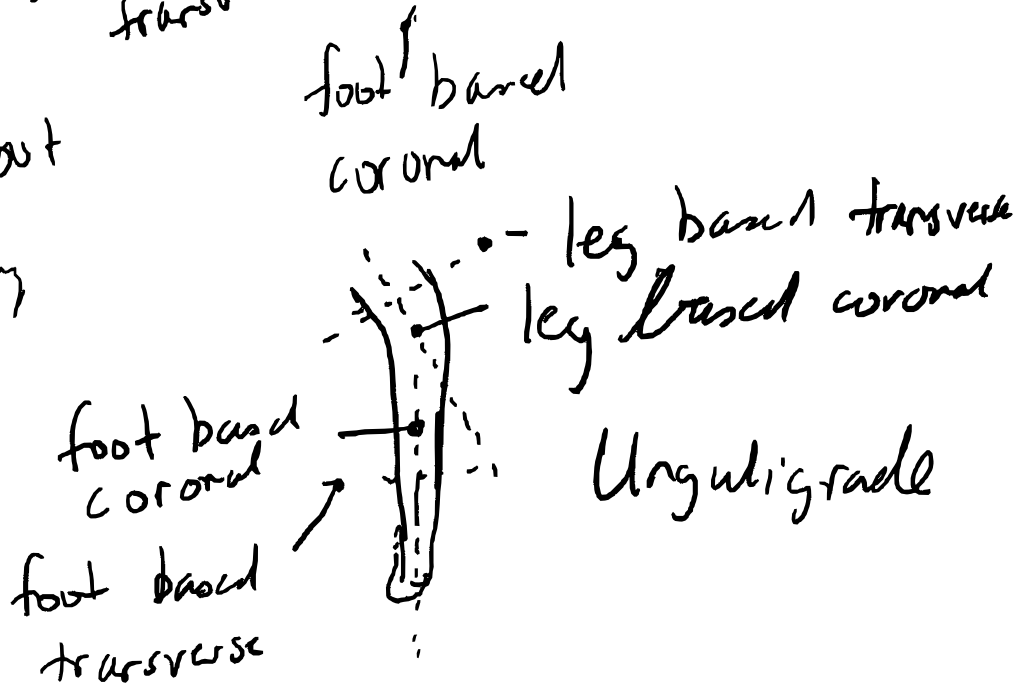 foot based
coronal
leg based transverse
leg based coronal
foot based
coronal
Unguligrade
foot based
transverse